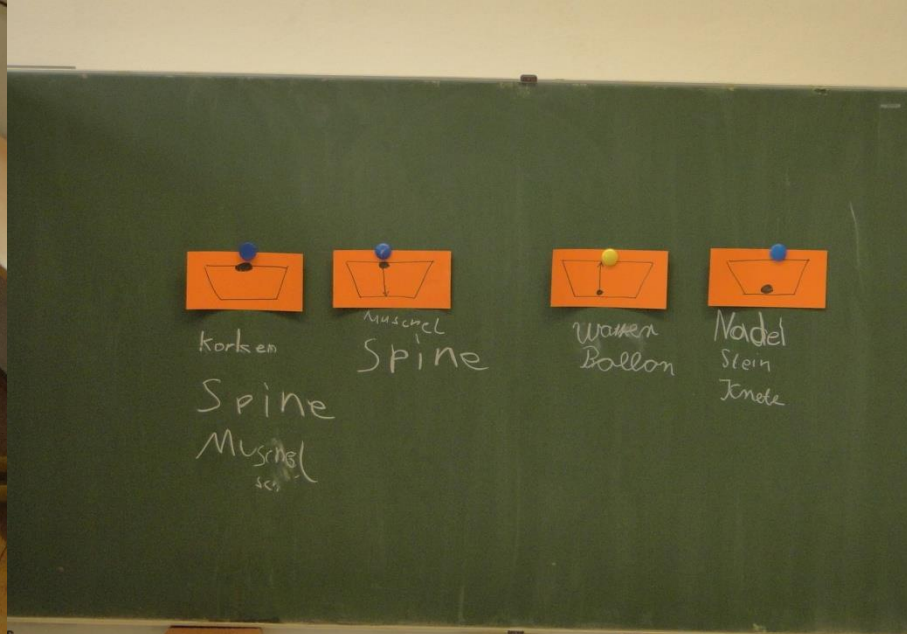 Korken
Spine
Muschel
sch
Muschel
Spine
Ballon
Nadel
Stein
Knete